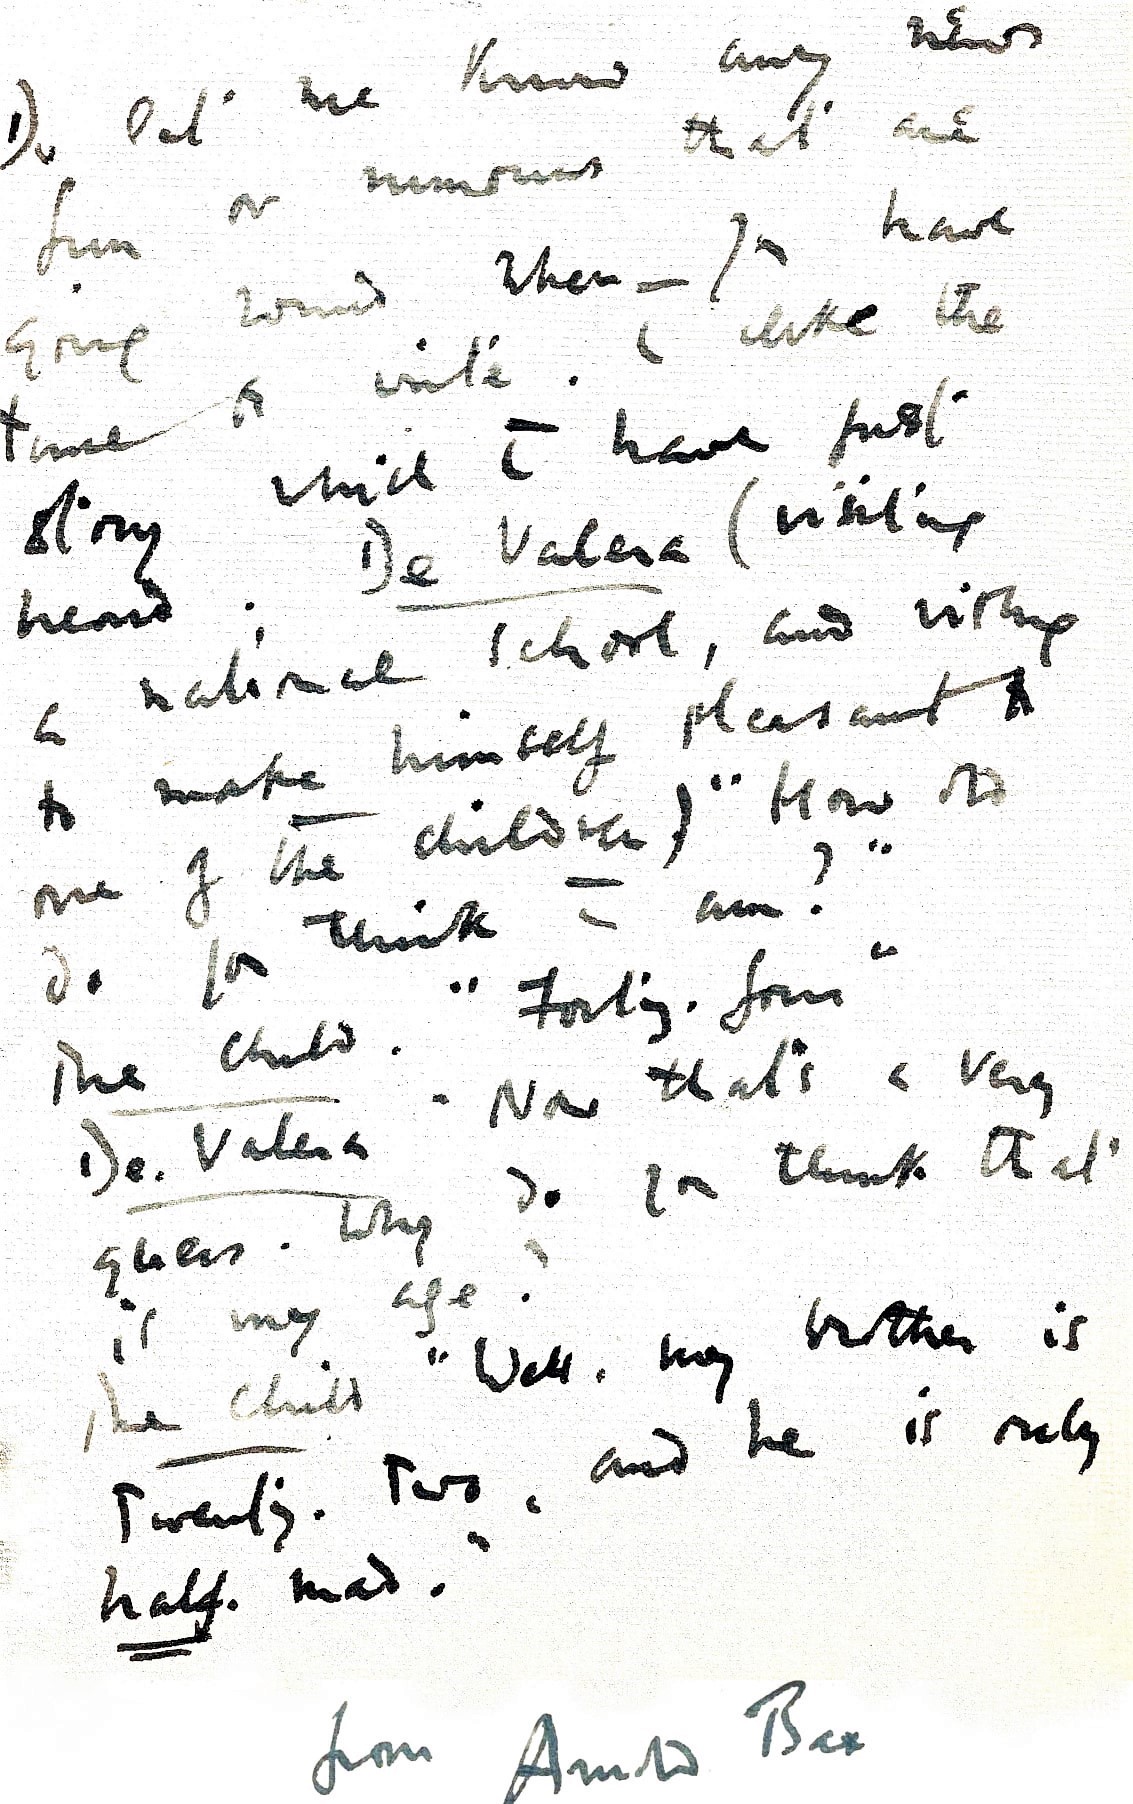 Do let me know any news
fun or rumours that are
going round when you have
time to write. I like the
story which I have just
heard: De Valera (visiting
a national school, and wishing
to make himself pleasant to
one of the children) "How old
do you think I am?"
The Child. "Forty-four"
De Valera. Now that's a very
guess. Why do you think that
is my age?
The Child "Well. my brother is
Twenty-two, and he is only
half-mad."
from Arnold Bax